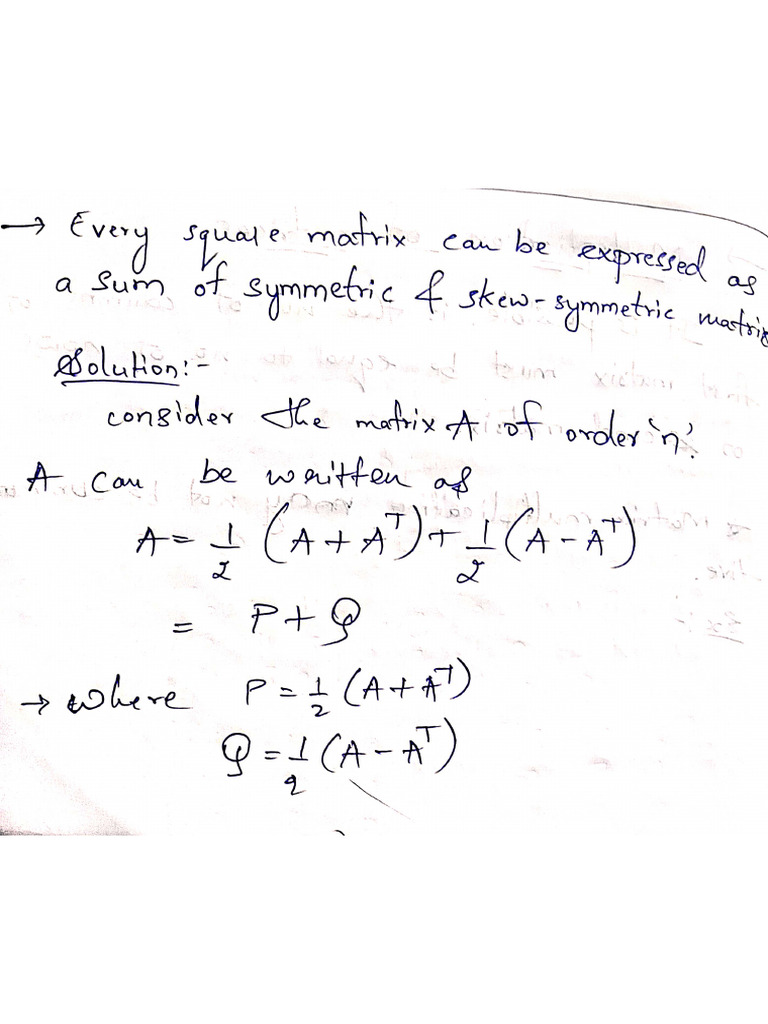 → Every square matrix can be expressed as
a sum of symmetric & skew-symmetric matrix
Solution:-
consider the matrix A of order 'n'.
A can be written as
A = 1/2 (A + A^T) + 1/2 (A - A^T)
= P + Q
→ where P = 1/2 (A + A^T)
Q = 1/2 (A - A^T)